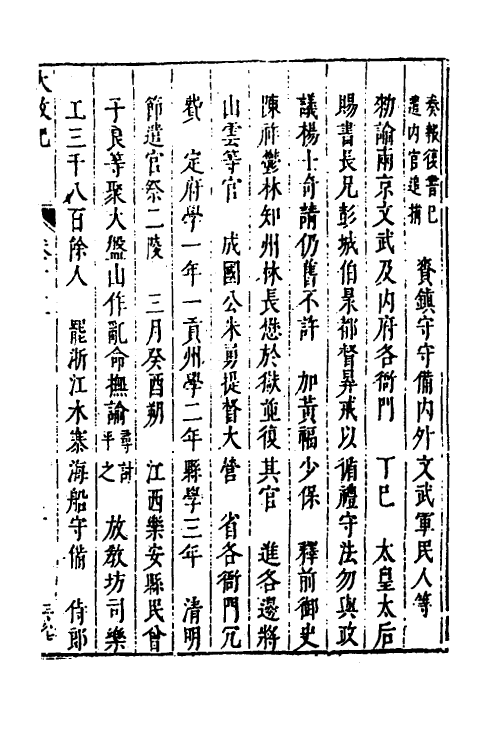 奏報後書已
遣内官追捕
賚鎮守守備内外文武軍民人等
勑諭兩京文武及内府各衙門　丁巳　太皇太后
賜書長兄彭城伯杲都督昇戒以循禮守法勿與政
議楊士奇請仍舊不許　加黃福少保　釋前御史
陳祚鬱林知州林長懋於獄並復其官　進各邊將
山雲等官　成國公朱勇提督大營　省各衙門冗
費　定府學一年一貢州學二年縣學三年　清明
節遣官祭二陵　三月癸酉朔　江西樂安縣民曾
子良等聚大盤山作亂命撫諭尋討平之　放教坊司樂
工三千八百餘人　罷浙江水寨海船守備　侍郎
大政記